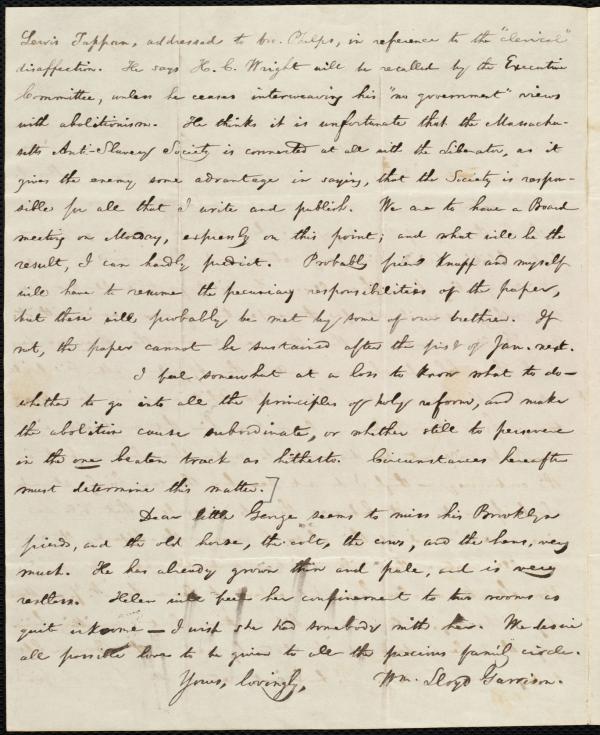 Lewis Tappan, addressed to bro. Phelps, in reference to the "clerical"
disaffection. He says H. C. Wright will be recalled by the Executive
Committee, unless he ceases interweaving his "no government" views
with abolitionism. He thinks it is unfortunate that the Massachu-
setts Anti-Slavery Society is connected at all with the Liberator, as it
gives the enemy some advantage in saying, that the Society is respon-
sible for all that I write and publish. We are to have a Board
meeting on Monday, expressly on this point; and what will be the
result, I can hardly predict. Probably friend Knapp and myself
will have to resume the pecuniary responsibilities of the paper,
but these will probably be met by some of our brethren. If
not, the paper cannot be sustained after the first of Jan. next.
I feel somewhat at a loss to know what to do—
whether to go into all the principles of holy reform, and make
the abolition cause subordinate, or whether still to persevere
in the one beaten track as hitherto. Circumstances hereafter
must determine this matter.]
Dear little George seems to miss his Brooklyn
friends, and the old horse, the colt, the cows, and the hens, very
much. He has already grown thin and pale, and is very
restless. Helen will feel her confinement to two rooms as
quite irksome — I wish she had somebody with her. We desire
all possible love to be given to all the precious family circle.
Yours, lovingly, Wm. Lloyd Garrison.